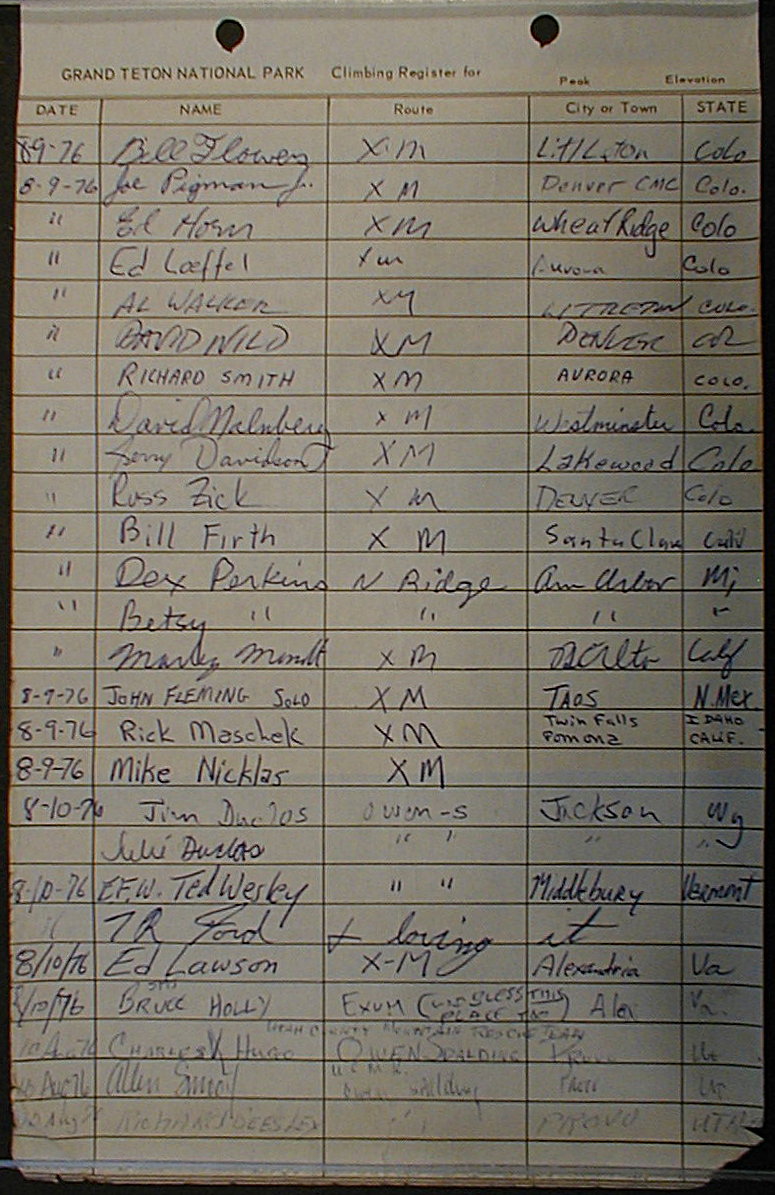 GRAND TETON NATIONAL PARK Climbing Register for Peak Elevation
DATE NAME Route City or Town STATE
89-76 Bill Flowers X M Littleton Colo
8-9-76 Joe Pigman Jr. X M Denver CMC Colo.
" Ed Horn XM Wheat Ridge Colo
" Ed Loeffel Xm Aurora Colo
" AL WALKER XM LITTLETON COLO.
" DAVID WILD XM DENVER COL
" RICHARD SMITH XM AURORA COLO.
" David Malmberg X M Westminster Colo.
" Jerry Davidson XM Lakewood Colo
" Russ Zick X M DENVER Colo
" Bill Firth X M Santa Clara Calif
" Dex Perkins N Ridge Ann Arbor Mi
" Betsy " " " "
" X M Calif
8-9-76 JOHN FLEMING SOLO XM TAOS N.Mex.
8-9-76 Rick Maschek XM Twin Falls IDAHO
Pomona CALIF.
8-9-76 Mike Nicklas XM
8-10-76 Jim Duclos Owen-S Jackson Wy
Julie Duclos " " " "
8/10-76 E.F.W. Ted Wesley " " Middlebury Vermont
" TR Ford + loving it
8/10/76 Ed Lawson X-M Alexandria Va
8/10/76 BRUCE HOLLY EXUM (GOD BLESS THIS PLACE TOO) Alex Va.
UTAH COUNTY MOUNTAIN RESCUE TEAM
10 Aug 76 CHARLES OWEN SPALDING Provo Ut.
10 Aug 76 Allen Owen Spalding Provo Ut.
10 Aug 76 RICHARD BEESLEY " PROVO UTAH